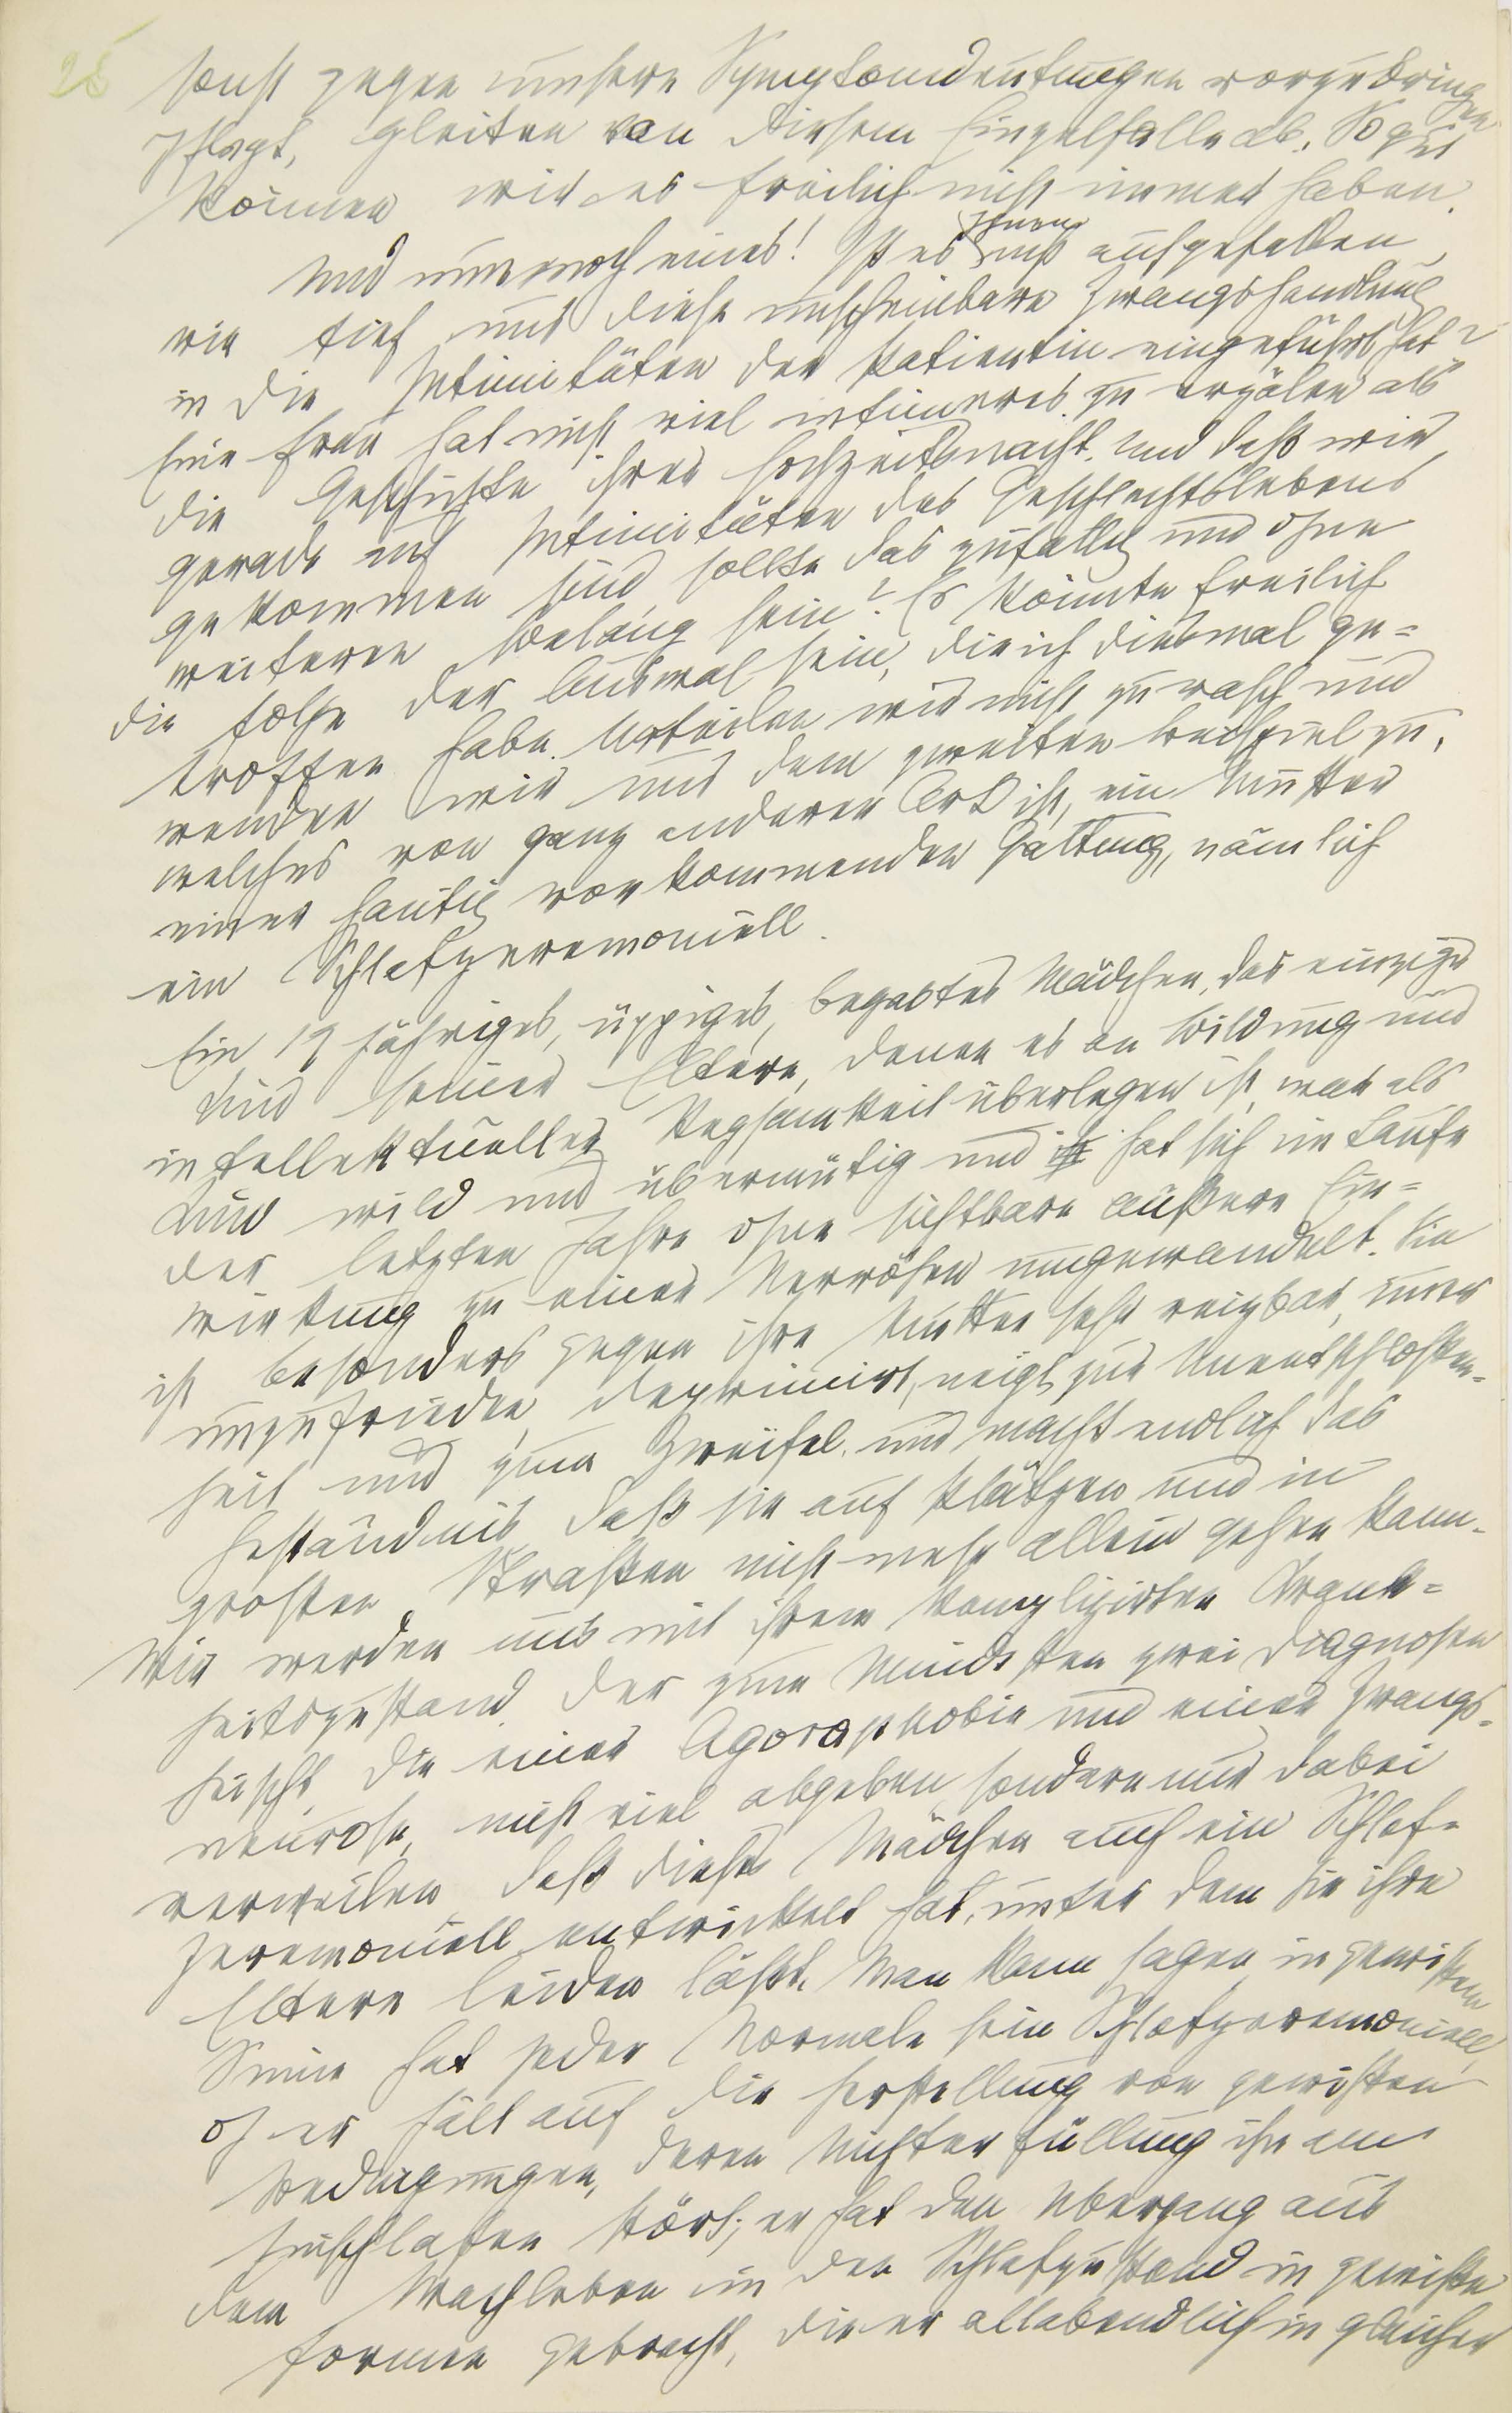 25
sonst gegen unsere Symptomdeutungen vorzubringen
pflegt, gleiten von diesem Einzelfalle ab. So gut
können wir es freilich nicht immer haben.
Und nun noch eines! Ist es Ihnen nicht aufgefallen,
wie tief uns diese unscheinbare Zwangshandlung
in die Intimitäten der Patientin eingeführt hat?
Eine Frau hat nicht viel intimeres zu erzälen als
die Geschichte ihrer Hochzeitsnacht. Und daß wir
gerade auf Intimitäten des Geschlechtslebens
gekommen sind, sollte das zufällig und ohne
weiteren Belang sein? Es könnte freilich
die Folge der Auswal sein, die ich diesmal ge=
troffen habe. Urteilen wir nicht zu rasch und
wenden wir uns dem zweiten Beispiel zu,
welches von ganz anderer Art ist, ein Muster
einer häufig vorkommenden Gattung, nämlich
ein Schlafzeremoniell.
Ein 19 jähriges, üppiges, begabtes Mädchen, das einzige
Kind seiner Eltern, denen es an Bildung und
intellektueller Regsamkeit überlegen ist, war als
Kind wild und übermütig und hat sich im Laufe
der letzten Jahre ohne sichtbare äußere Ein=
wirkung zu einer Nervösen umgewandelt. Sie
ist besonders gegen ihre Mutter sehr reizbar, immer
unzufrieden, deprimirt, neigt zur Unentschlossen=
heit und zum Zweifel und macht endlich das
Geständnis, daß sie auf Plätzen und in
großen Straßen nicht mehr allein gehen kann.
Wir werden uns mit ihrem komplizirten Krank=
heitszustand, der zum Mindesten zwei Diagnosen
heischt, die einer Agoraphobie und einer Zwangs=
neurose, nicht viel abgeben, sondern nur dabei
verweilen, daß dieses Mädchen auch ein Schlaf=
zeremoniell entwickelt hat, unter dem sie ihre
Eltern leiden läßt. Man kann sagen, in gewissem
Sinne hat jeder Normale sein Schlafzeremoniell,
oder er hält auf die Herstellung von gewissen
Bedingungen, deren Nichterfüllung ihn am
Einschlafen stört; er hat den Übergang aus
dem Wachleben in den Schlafzustand in gewisse
Formen gebracht, die er allabendlich in gleicher